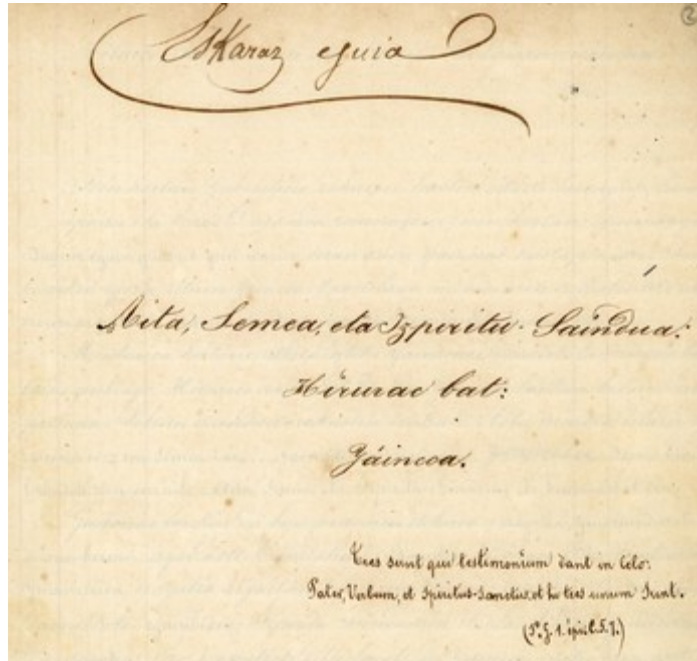 2
Eskaraz eguia
Aita, Semea, eta Izpiritu-Saindua:
Hirurac bat:
Jaincoa.
Tres sunt qui testimonium dant in Celo:
Pater, Verbum, et Spiritus-Sanctus, et hi tres unum Sunt.